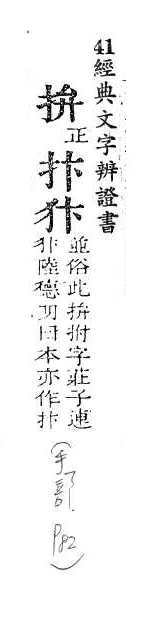 41經典文字辨證書
拚正拤犿
並俗此拚拊字莊子連
犿陸德明日本亦作拤
(手部 P82)